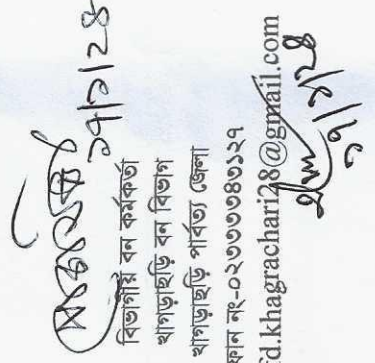 ১৭/১/২৪
বিভাগীয় বন কর্মকর্তা
খাগড়াছড়ি বন বিভাগ
খাগড়াছড়ি পার্বত্য জেলা
ফান নং-০২৩৩৩৩৪৩১২৭
fd.khagrachari28@gmail.com
১৭/১/২৪